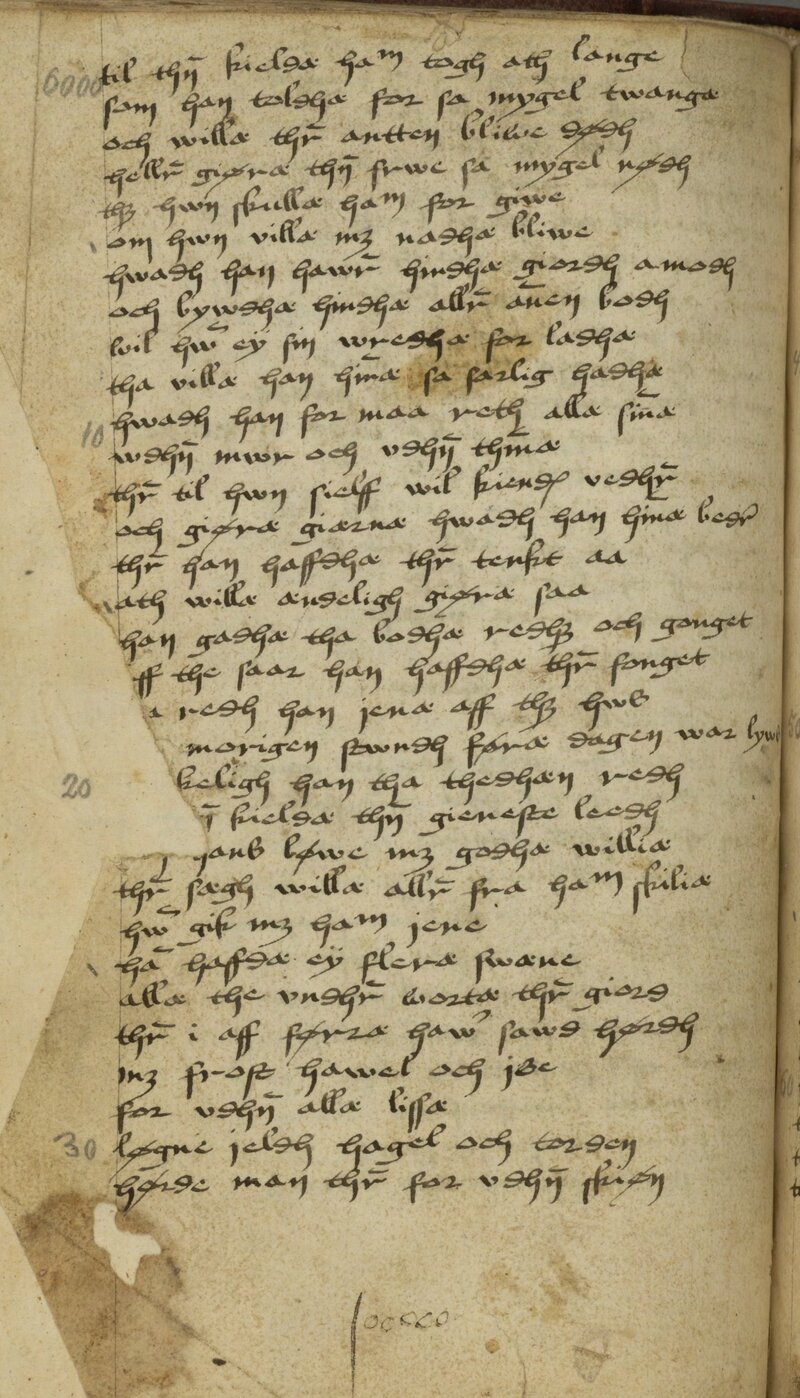 6000 til thn̄ kieldæ haᵐ togh ath lange
som han toldhæ for sa mygel twangæ
och willæ thr̄ antten bliwe dødh
hellr̄ giøræ thn̄ frwe sa mygel nødh
thꝫ hwn skullæ haᵐ for giwe
om hwn villæ mꝫ nadhæ bliwe
hwadh han hawr̄ hindhæ giordh amodh
och bywdhæ hindhæ allr̄ ānen bodh
wil hw̄ ey sin wredhæ for ladhæ
tha villæ han hīnæ sa farlig hadhæ
10 hwadh han for maa reth allæ sīnæ
wdhn̄ mwr och vdhn̄ thīmæ
thr̄ til hwn sielff wil kiendꝭ vedhr̄
och giøræ giærnæ hwadh han hīnæ bedr̄
thr̄ han haffdhæ thr̄ tenkt aa
ath willæ ændeligh giøræ saa
han gadhæ tha bodhæ redhꝫ och gonget
ff the saar han haffdhæ thr̄ fonget
a redh han jenæ aff thꝫ hws
morigen stwndh føræ dagen war lyws
20 keligh han tha thedhæn redh
kieldæ thn̄ gieneste leedh
jans løwe mꝫ godhæ williæ
thr̄ sægh willæ allr̄ fra haᵐ skiliæ
hw̄ gik mꝫ haᵐ jene
hā haffdæ ey fleræ swæne
allæ the vndhr̄ wortæ thr̄ giord
thr̄ i aff førræ haw̄ sawd hørdh
mꝫ frost hawel och jse
for vdhn̄ allæ lissæ
30 løgne jeldh hagel och torden
hørde man thr̄ for vdhn̄ skiøn